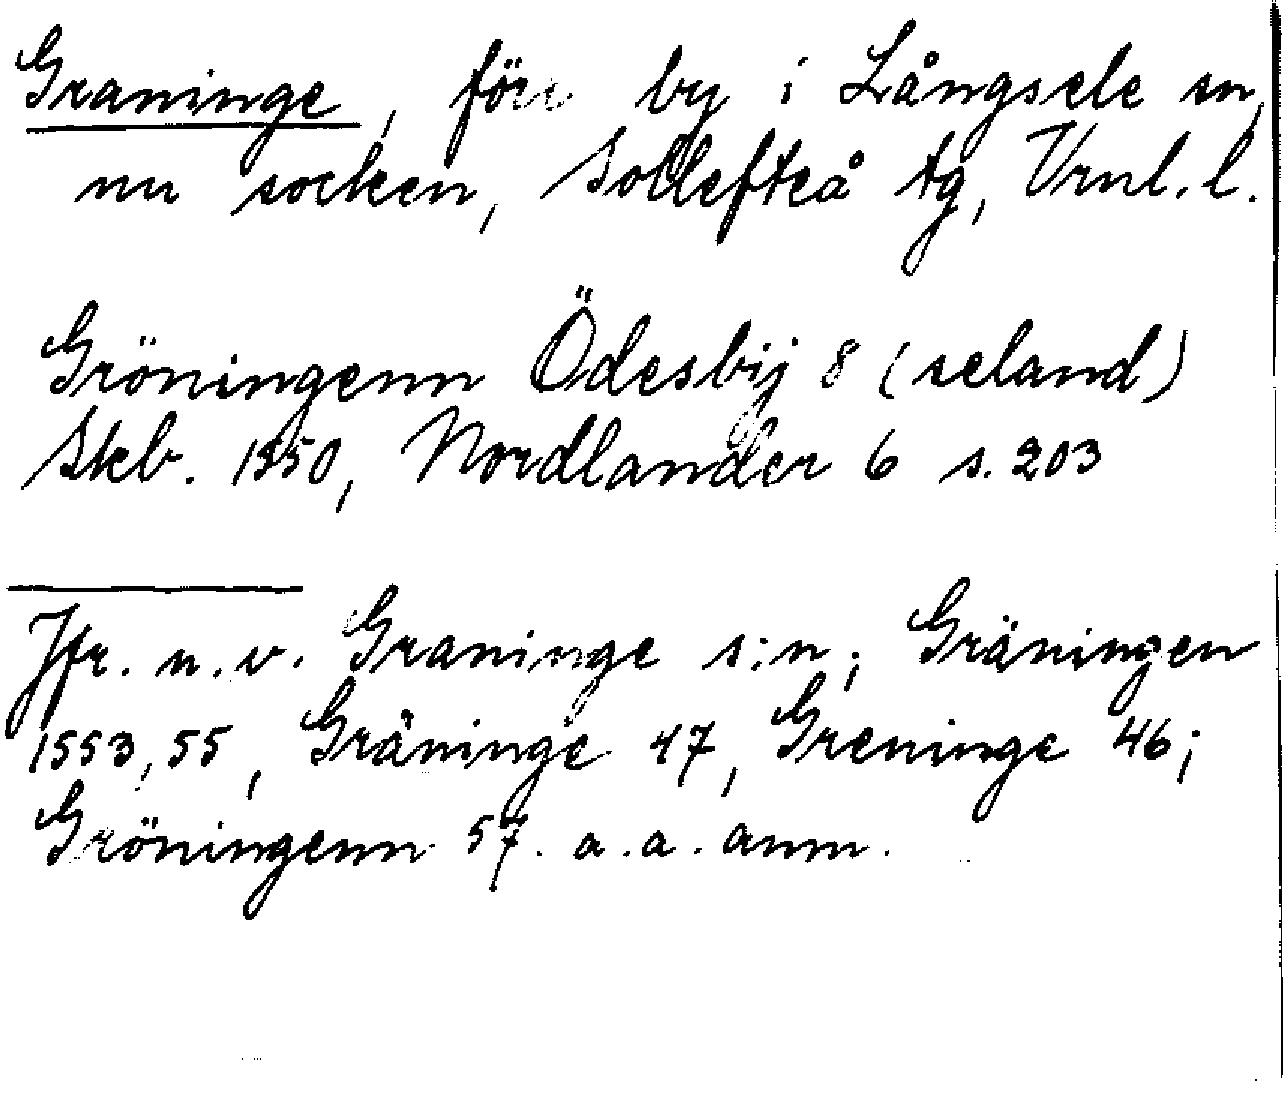 Graninge, före by i Långsele sn,
nu socken, Sollefteå tg, Vrnl. l.
Gröningenn Ödesbÿ 8 (seland)
Skb. 1550, Nordlander 6 s. 203
Jfr. n.v. Graninge s:n; Gräningen
1553, 55, Gräninge 47, Greninge 46;
Gröningenn 57. a.a. anm.